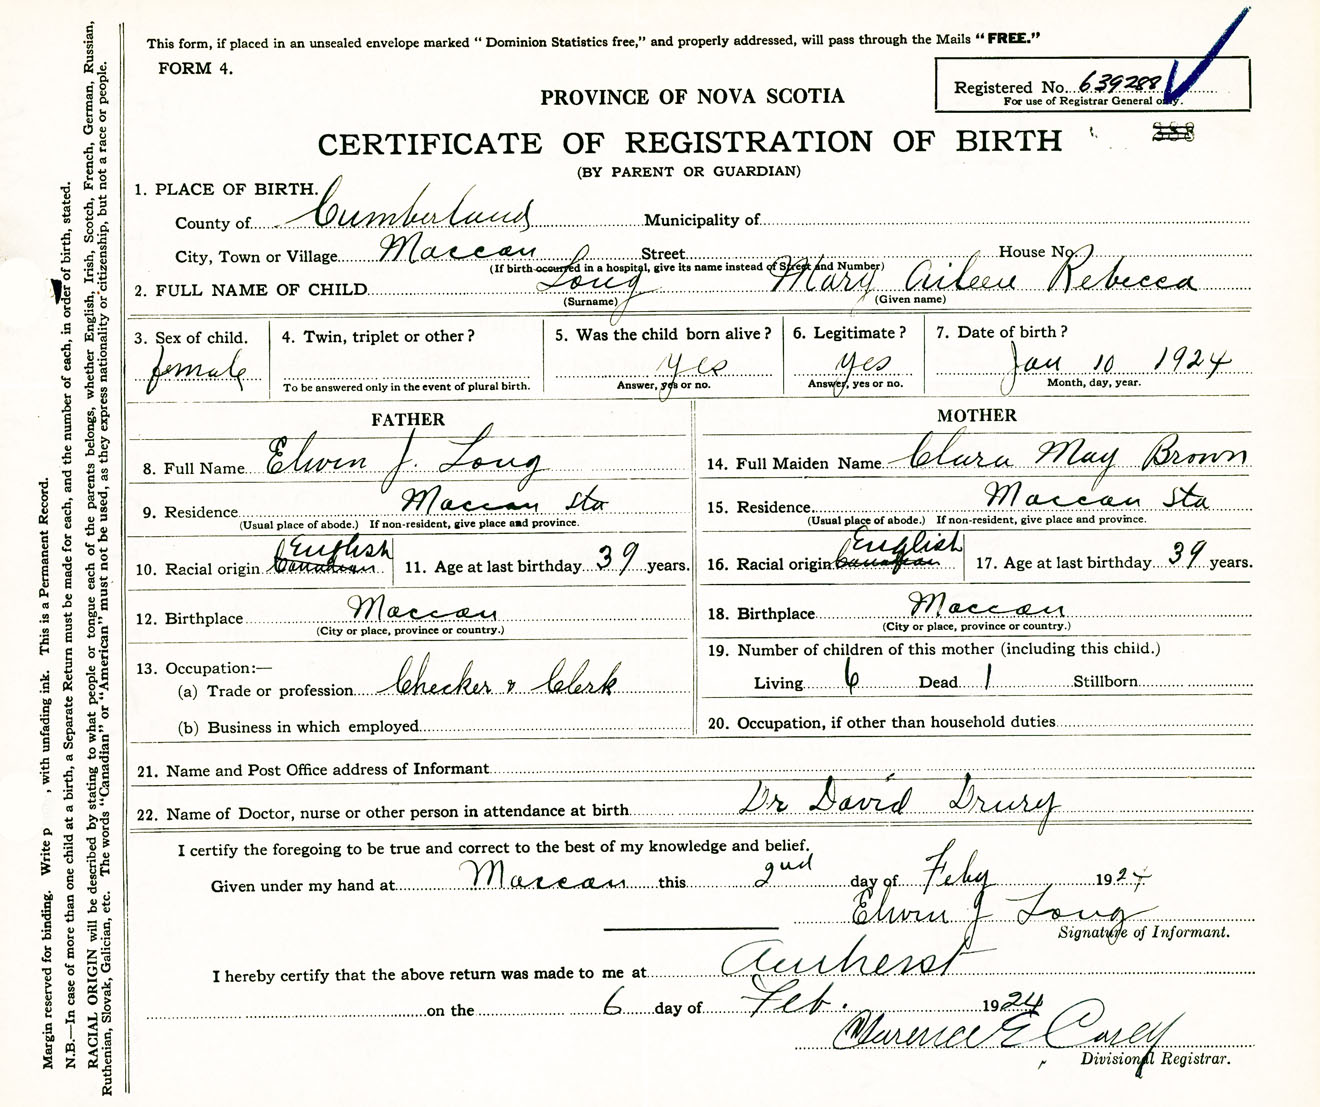 This form, if placed in an unsealed envelope marked “ Dominion Statistics free,” and properly addressed, will pass through the Mails “FREE.”
FORM 4.
Registered No. 639288
For use of Registrar General only.
PROVINCE OF NOVA SCOTIA
CERTIFICATE OF REGISTRATION OF BIRTH
(BY PARENT OR GUARDIAN)
1. PLACE OF BIRTH.
County of Cumberland Municipality of
City, Town or Village Maccan Street House No.
(If birth occurred in a hospital, give its name instead of Street and Number)
2. FULL NAME OF CHILD Long Mary Aileen Rebecca
(Surname) (Given name)
3. Sex of child. 4. Twin, triplet or other? 5. Was the child born alive? 6. Legitimate? 7. Date of birth?
female yes yes Jan 10 1924
To be answered only in the event of plural birth. Answer, yes or no. Answer, yes or no. Month, day, year.
FATHER
8. Full Name Elwin J. Long
9. Residence Maccan Sta
(Usual place of abode.) If non-resident, give place and province.
10. Racial origin English Canadian 11. Age at last birthday 39 years.
12. Birthplace Maccan
(City or place, province or country.)
13. Occupation:—
(a) Trade or profession Checker & Clerk
(b) Business in which employed
MOTHER
14. Full Maiden Name Clara May Brown
15. Residence Maccan Sta
(Usual place of abode.) If non-resident, give place and province.
16. Racial origin English Canadian 17. Age at last birthday 39 years.
18. Birthplace Maccan
(City or place, province or country.)
19. Number of children of this mother (including this child.)
Living 6 Dead 1 Stillborn
20. Occupation, if other than household duties
21. Name and Post Office address of Informant
22. Name of Doctor, nurse or other person in attendance at birth Dr David Drury
I certify the foregoing to be true and correct to the best of my knowledge and belief.
Given under my hand at Maccan this 2nd day of Feby 1924
Elwin J Long
Signature of Informant.
I hereby certify that the above return was made to me at Amherst
on the 6 day of Feb. 1924
Clarence E Casey
Divisional Registrar.
Margin reserved for binding. Write p , with unfading ink. This is a Permanent Record.
N.B.—In case of more than one child at a birth, a Separate Return must be made for each, and the number of each, in order of birth, stated.
RACIAL ORIGIN will be described by stating to what people or tongue each of the parents belongs, whether English, Irish, Scotch, French, German, Russian,
Ruthenian, Slovak, Galician, etc. The words “Canadian” or “American” must not be used, as they express nationality or citizenship, but not a race or people.